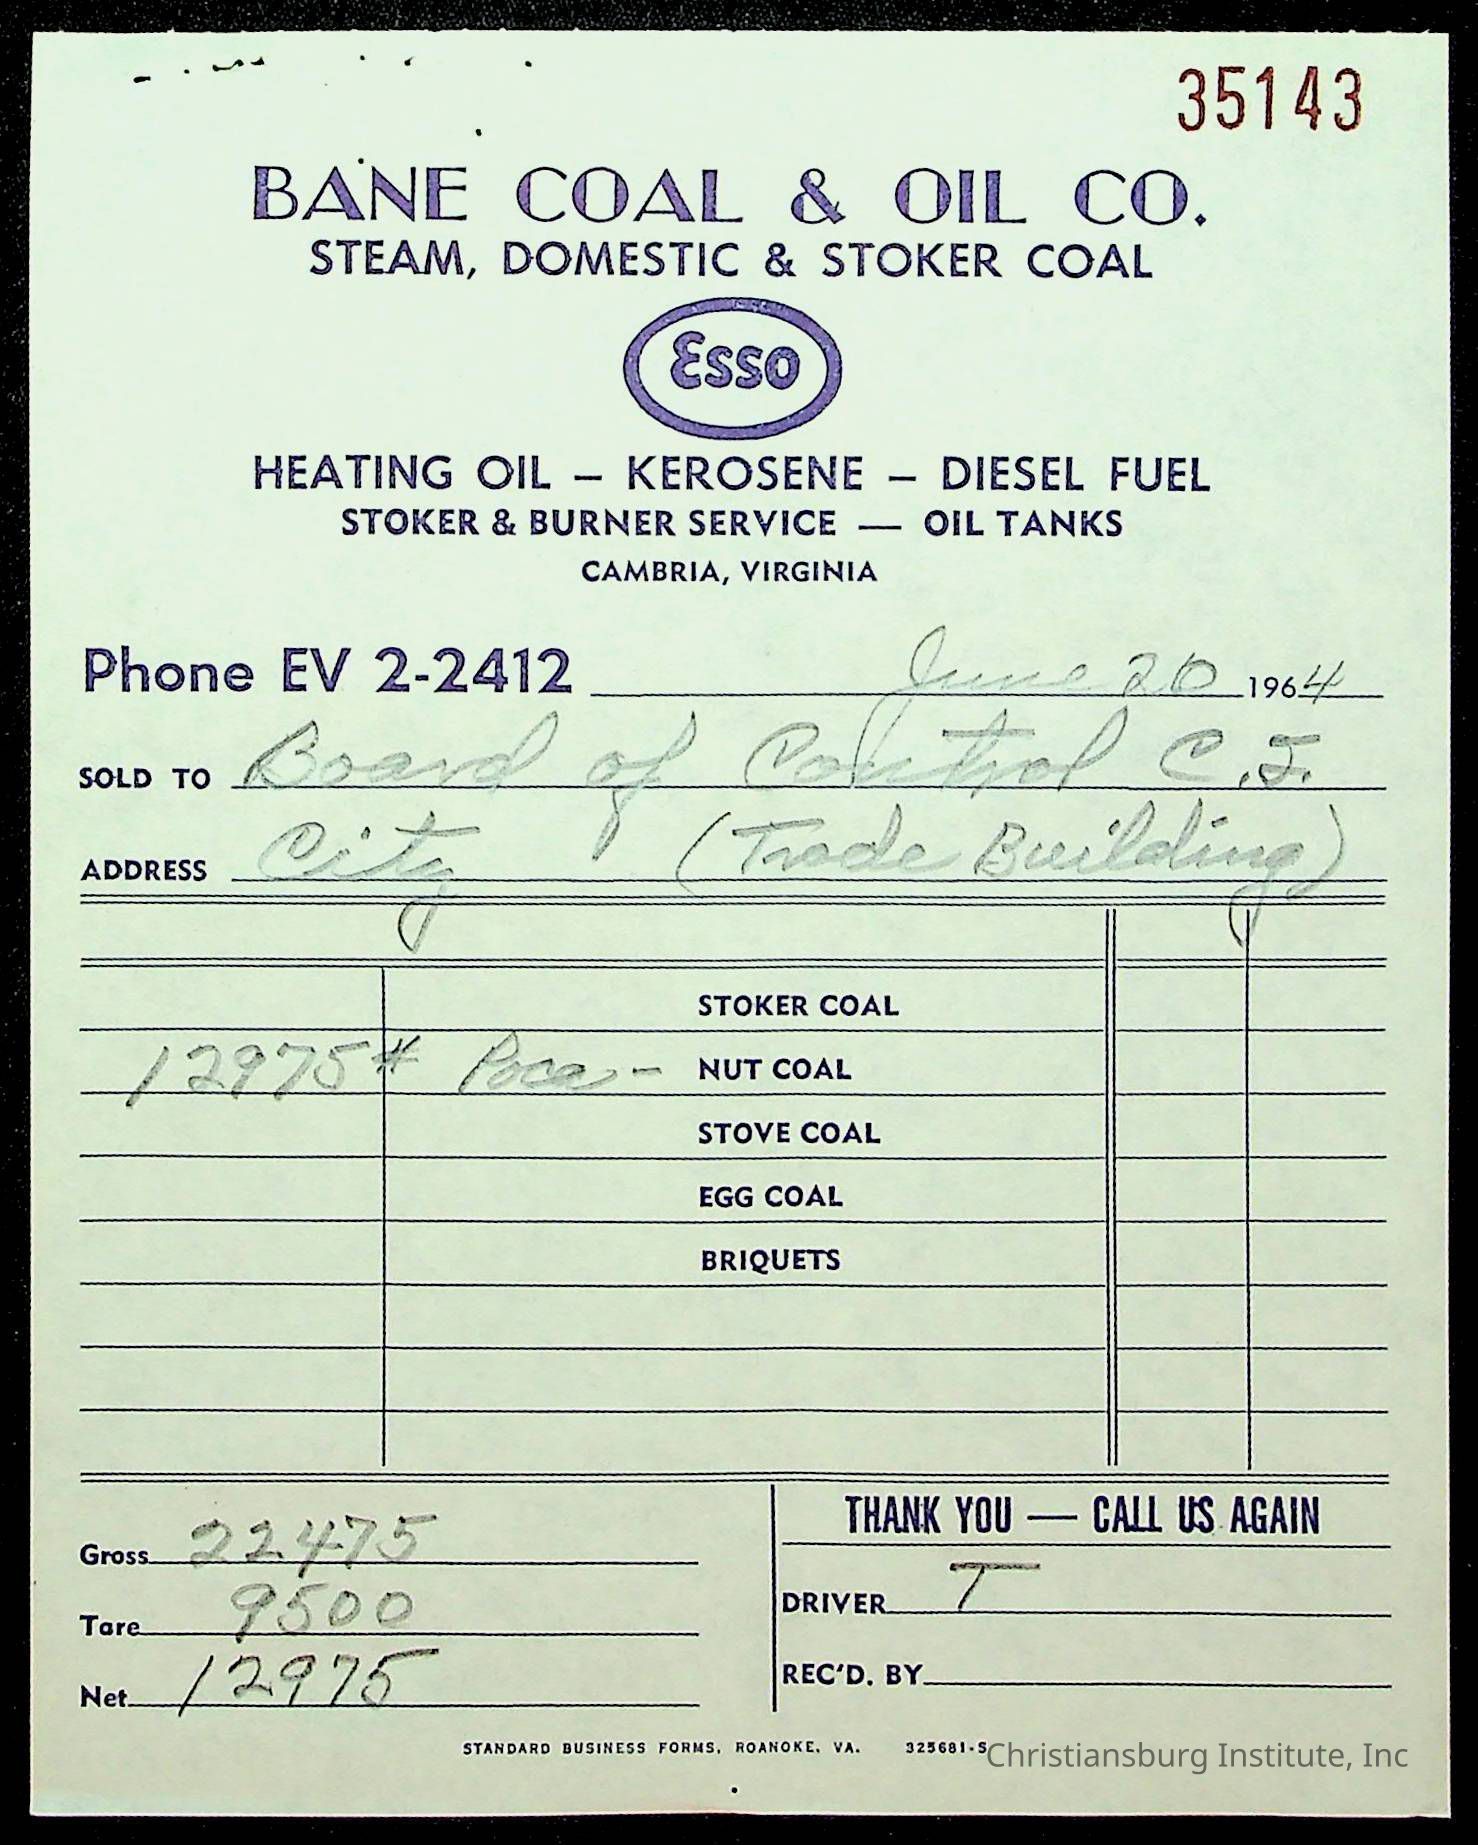 35143
BANE COAL & OIL CO.
STEAM, DOMESTIC & STOKER COAL
Esso
HEATING OIL – KEROSENE – DIESEL FUEL
STOKER & BURNER SERVICE — OIL TANKS
CAMBRIA, VIRGINIA
Phone EV 2-2412 June 26 1964
SOLD TO Board of Control C.I.
ADDRESS City (Trade Building)
STOKER COAL
12975# Poca - NUT COAL
STOVE COAL
EGG COAL
BRIQUETS
THANK YOU — CALL US AGAIN
Gross 22475
Tare 9500
Net 12975
DRIVER T
REC'D. BY
STANDARD BUSINESS FORMS, ROANOKE, VA. 325681-S
Christiansburg Institute, Inc